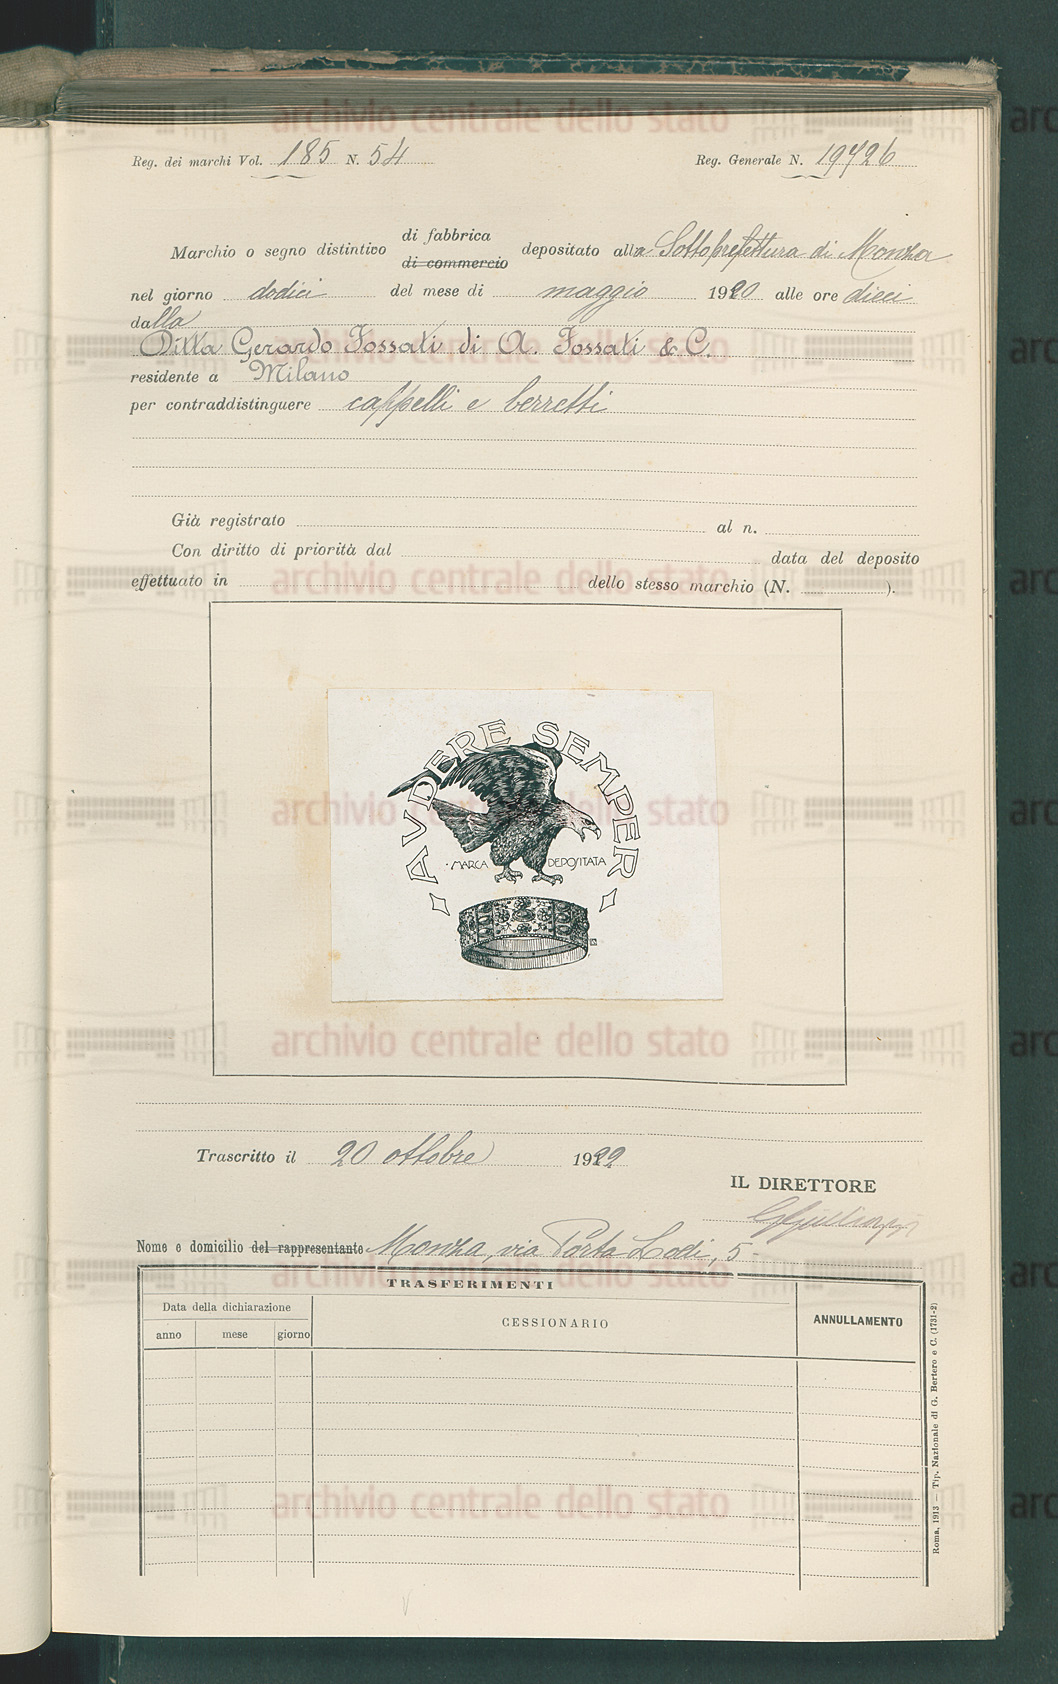 Reg. dei marchi Vol. 185 N. 54
Reg. Generale N. 19726
Marchio o segno distintivo di fabbrica di commercio depositato alla Sottoprefettura di Monza
nel giorno dodici del mese di maggio 1920 alle ore dieci
dalla
Ditta Gerardo Fossati di A. Fossati & C.
residente a Milano
per contraddistinguere cappelli e berretti
Già registrato al n.
Con diritto di priorità dal data del deposito
effettuato in dello stesso marchio (N. ).
AVDERE SEMPER
MARCA DEPOSITATA
Trascritto il 20 ottobre 1922
IL DIRETTORE
Nome e domicilio del rappresentante Monza, via Porta Lodi, 5
TRASFERIMENTI
Data della dichiarazione
anno mese giorno
CESSIONARIO
ANNULLAMENTO
Roma, 1913 — Tip. Nazionale di G. Bertero e C. (1731-2)
archivio centrale dello stato
archivio centrale dello stato
archivio centrale dello stato
archivio centrale dello stato
archivio centrale dello stato
archivio centrale dello stato
archivio centrale dello stato